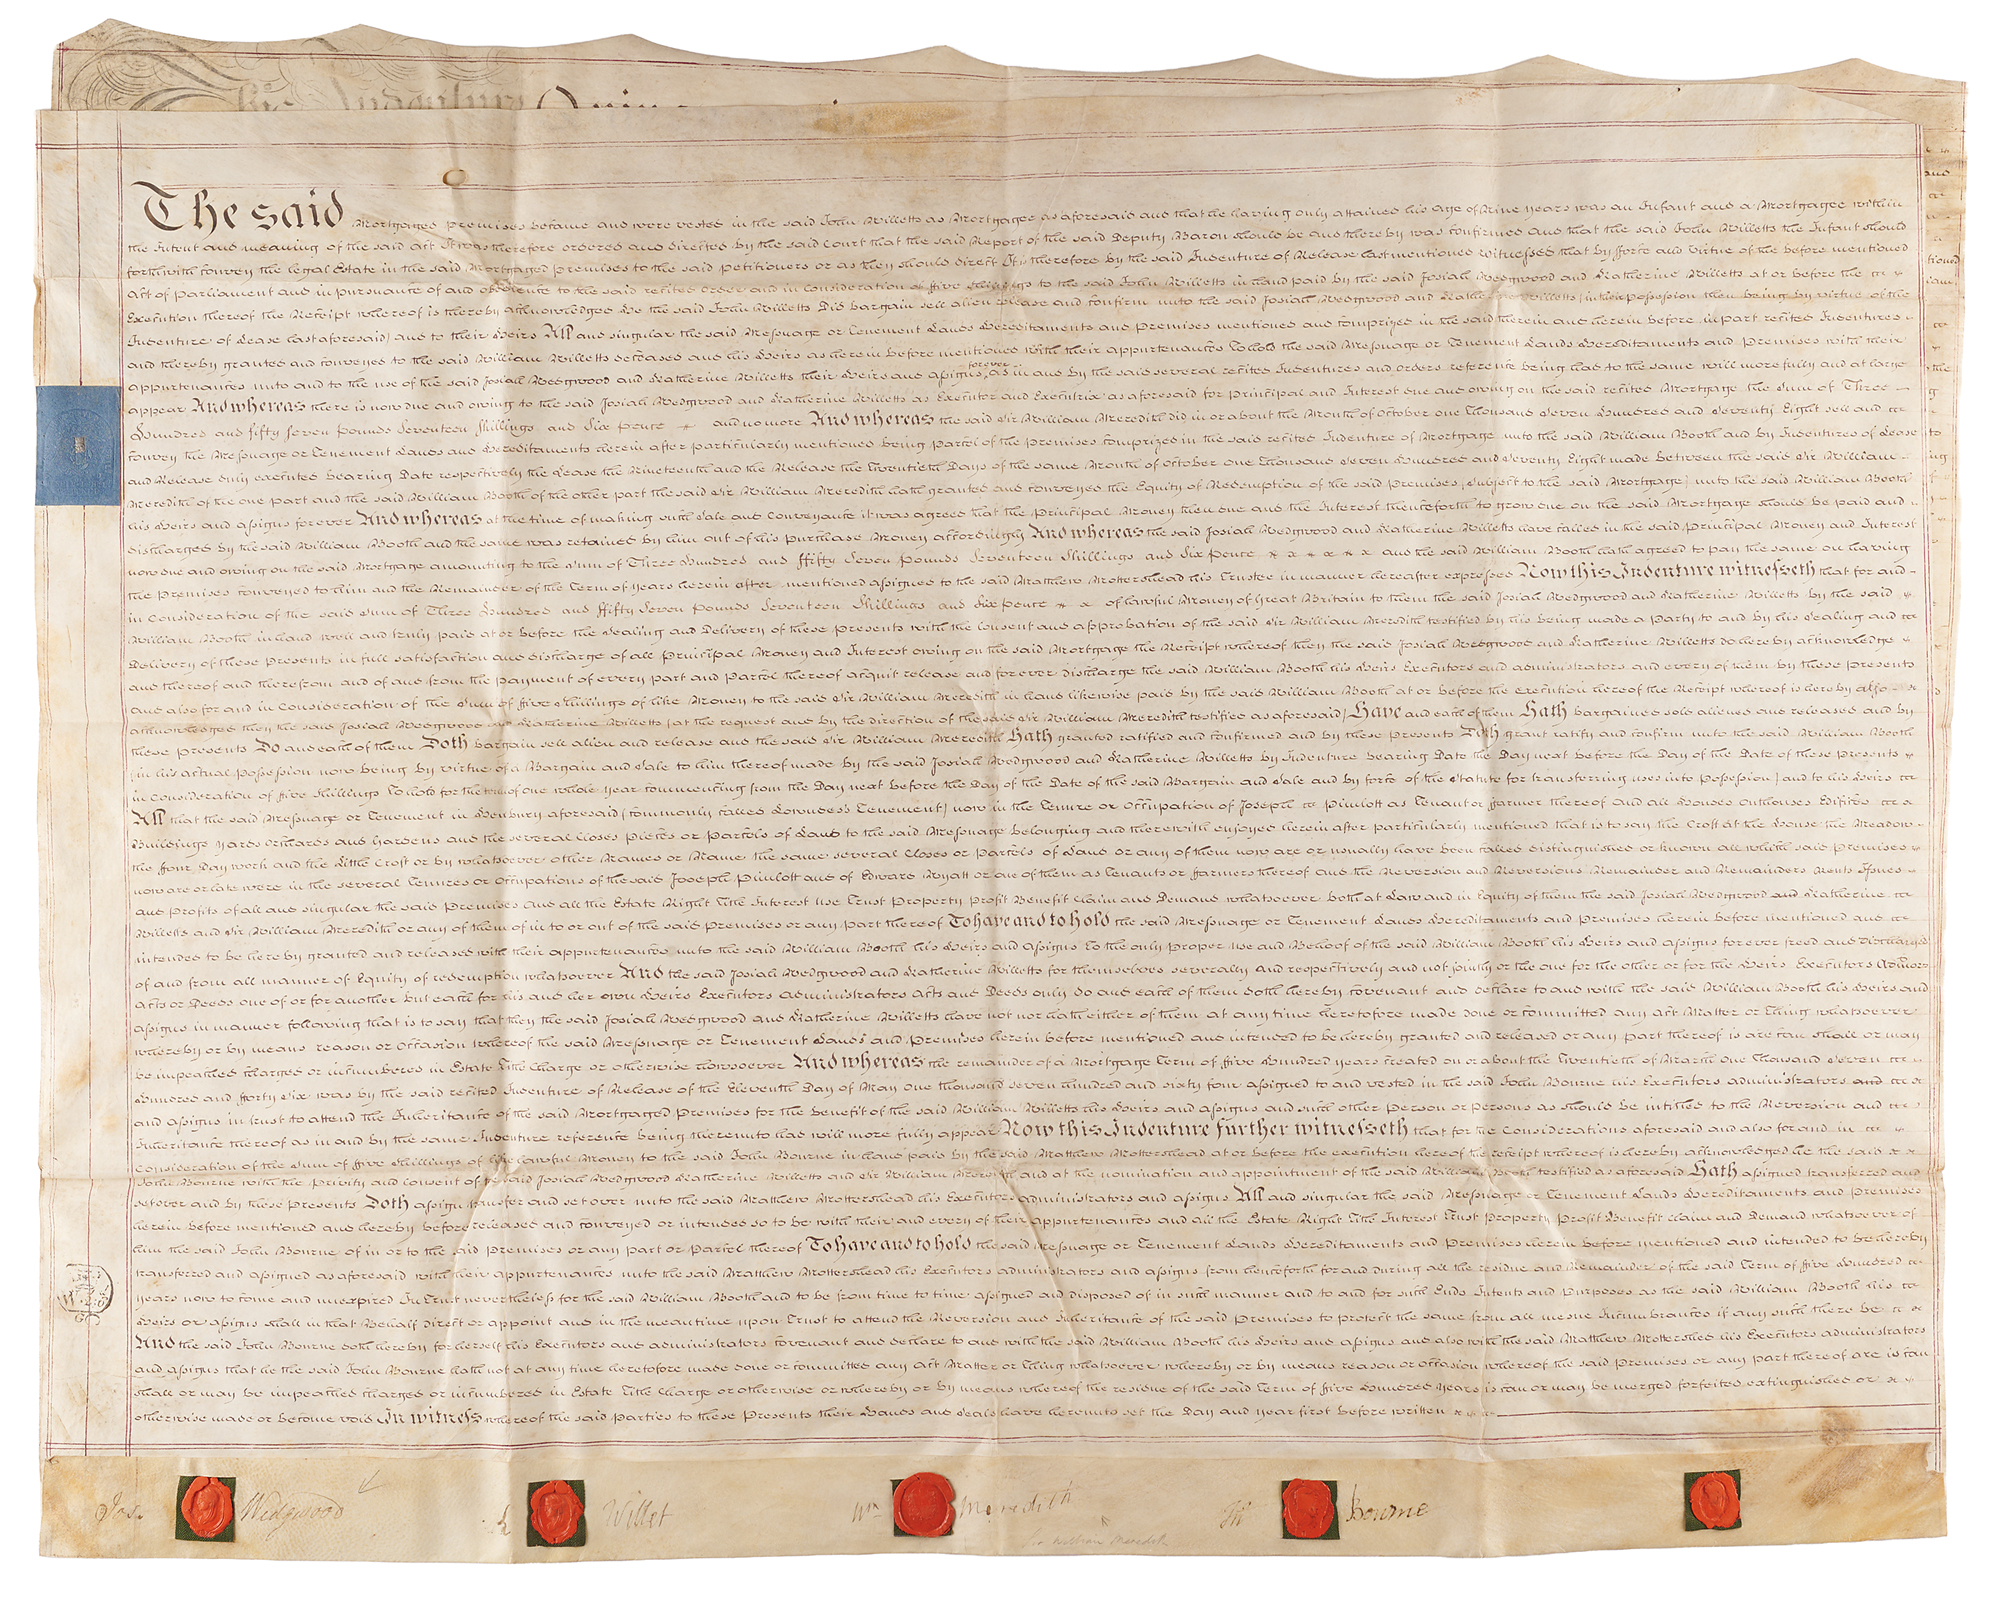 This Indenture Quin
The said Mortgaged premises became and were vested in the said John Willetts as Mortgagee as aforesaid and that he having only attained his age of Nine years was an Infant and a Mortgagee within
the Intent and meaning of the said Act It was therefore ordered and directed by the said Court that the said Report of the said Deputy Baron should be and thereby was confirmed and that the said John Willetts the Infant should
forthwith convey the legal Estate in the said Mortgaged premises to the said petitioners or as they should direct It is therefore by the said Indenture of Release last mentioned witnessed that by force and virtue of the before mentioned
Act of Parliament and in pursuance of and obedience to the said recited Order and in Consideration of five shillings to the said John Willetts in hand paid by the said Josiah Wedgwood and Katherine Willetts at or before the
Execution thereof the Receipt whereof is thereby acknowledged He the said John Willetts Did bargain sell alien release and confirm unto the said Josiah Wedgwood and Katherine Willetts (in their possession then being by virtue of the
Indenture of Lease last aforesaid) and to their Heirs All and singular the said Messuage or Tenement Lands Hereditaments and Premises mentioned and comprized in the said therein and herein before in part recited Indentures
and thereby granted and conveyed to the said William Willetts deceased and his Heirs as herein before mentioned with their appurtenances To hold the said Messuage or Tenement Lands Hereditaments and Premises with their
appurtenances unto and to the use of the said Josiah Wedgwood and Katherine Willetts their Heirs and assigns forever as in and by the said several recited Indentures and orders reference being had to the same will more fully and at large
appear And whereas there is now due and owing to the said Josiah Wedgwood and Katherine Willetts as Executor and Executrix as aforesaid for Principal and Interest due and owing on the said recited Mortgage the Sum of Three
Hundred and fifty seven Pounds Seventeen Shillings and Six Pence and no more And whereas the said Sir William Meredith did in or about the Month of October One Thousand Seven Hundred and Seventy Eight sell and
convey the Messuage or Tenement Lands and Hereditaments herein after particularly mentioned being parcel of the Premises comprized in the said recited Indenture of Mortgage unto the said William Booth and by Indentures of Lease
and Release duly executed bearing Date respectively the Lease the Nineteenth and the Release the Twentieth Days of the same Month of October One Thousand Seven Hundred and Seventy Eight made between the said Sir William
Meredith of the one part and the said William Booth of the other part the said Sir William Meredith hath granted and conveyed the Equity of Redemption of the said Premises (subject to the said Mortgage) unto the said William Booth
his Heirs and assigns forever And whereas at the time of making such Sale and Conveyance it was agreed that the Principal Money then due and the Interest thenceforth to grow due on the said Mortgage should be paid and
discharged by the said William Booth and the same was retained by him out of his Purchase Money accordingly And whereas the said Josiah Wedgwood and Katherine Willetts have called in the said Principal Money and Interest
now due and owing on the said Mortgage amounting to the Sum of Three Hundred and ffifty Seven Pounds Seventeen Shillings and Six Pence and the said William Booth hath agreed to pay the same on having
the Premises conveyed to him and the Remainder of the Term of Years herein after mentioned assigned to the said Matthew Mottershead his Trustee in manner hereafter expressed Now this Indenture witnesseth that for and
in Consideration of the said Sum of Three Hundred and ffifty Seven Pounds Seventeen Shillings and Six Pence of lawful Money of Great Britain to them the said Josiah Wedgwood and Katherine Willetts by the said
William Booth in hand well and truly paid at or before the Sealing and Delivery of these Presents with the Consent and approbation of the said Sir William Meredith testified by his being made a Party to and by his Sealing and
Delivery of these Presents in full satisfaction and discharge of all Principal Money and Interest owing on the said Mortgage the Receipt whereof they the said Josiah Wedgwood and Katherine Willetts do hereby acknowledge
and thereof and therefrom and of and from the payment of every part and Parcel thereof acquit release and forever discharge the said William Booth his Heirs Executors and administrators and every of them by these Presents
and also for and in Consideration of the Sum of ffive Shillings of like Money to the said Sir William Meredith in hand likewise paid by the said William Booth at or before the execution hereof the Receipt whereof is hereby also
acknowledged they the said Josiah Wedgwood and Katherine Willetts (at the request and by the direction of the said Sir William Meredith testified as aforesaid) Have and each of them Hath bargained sold aliened and released and by
these Presents Do and each of them Doth bargain sell alien and release and the said Sir William Meredith Hath granted ratified and confirmed and by these Presents Doth grant ratify and confirm unto the said William Booth
(in his actual Possession now being by virtue of a Bargain and Sale to him thereof made by the said Josiah Wedgwood and Katherine Willetts by Indenture bearing Date the Day next before the Day of the Date of these Presents
in Consideration of five Shillings To hold for the term of one whole year commencing from the Day next before the Day of the Date of the said Bargain and Sale and by force of the Statute for transferring uses into Possession) and to his Heirs
All that the said Messuage or Tenement in Henbury aforesaid (commonly called Lowndes's Tenement) now in the Tenure or Occupation of Joseph Pimlott as Tenant or ffarmer thereof and all Houses Outhouses Edifices
Buildings Yards Orchards and Gardens and the several Closes Pieces or Parcels of Land to the said Messuage belonging and therewith enjoyed herein after particularly mentioned that is to say the Croft at the House the Meadow
the ffour Day work and the Little Croft or by whatsoever other Names or Name the same several Closes or Parcels of Land or any of them now are or usually have been called distinguished or known all which said Premises
now are or late were in the several Tenures or Occupations of the said Joseph Pimlott and of Edward Wyatt or one of them as Tenants or ffarmers thereof and the Reversion and Reversions Remainder and Remainders Rents Issues
and Profits of all and singular the said Premises and all the Estate Right Title Interest Use Trust Property Profit Benefit Claim and Demand whatsoever both at Law and in Equity of them the said Josiah Wedgwood and Katherine
Willetts and Sir William Meredith or any of them of in to or out of the said Premises or any part thereof To have and to hold the said Messuage or Tenement Lands Hereditaments and Premises herein before mentioned and
intended to be hereby granted and released with their appurtenances unto the said William Booth his Heirs and assigns to the only Proper use and Behoof of the said William Booth his Heirs and assigns forever freed and discharged
of and from all manner of Equity of redemption whatsoever And the said Josiah Wedgwood and Katherine Willetts for themselves severally and respectively and not jointly or the one for the other or for the Heirs Executors Admors
Acts or Deeds one of or for another but each for his and her own Heirs Executors administrators Acts and Deeds only do and each of them doth hereby covenant and declare to and with the said William Booth his Heirs and
assigns in manner following that is to say that they the said Josiah Wedgwood and Katherine Willetts have not nor hath either of them at any time heretofore made done or committed any act Matter or Thing whatsoever
whereby or by means reason or Occasion whereof the said Messuage or Tenement Lands and Premises herein before mentioned and intended to be hereby granted and released or any part thereof is are can shall or may
be impeached charged or incumbered in Estate Title Charge or otherwise howsoever And whereas the remainder of a Mortgage Term of ffive Hundred years created on or about the Twentieth of March One Thousand Seven
Hundred and fforty Six was by the said recited Indenture of Release of the Eleventh Day of May One thousand seven hundred and sixty four assigned to and vested in the said John Bourne his Executors administrators and
and assigns in trust to attend the Inheritance of the said Mortgaged Premises for the benefit of the said William Willetts his Heirs and assigns and such other Person or Persons as should be intitled to the Reversion and
Inheritance thereof as in and by the same Indenture reference being thereunto had will more fully appear Now this Indenture further witnesseth that for the Considerations aforesaid and also for and in
Consideration of the Sum of ffive Shillings of like lawful Money to the said John Bourne in hand paid by the said Matthew Mottershead at or before the execution hereof the receipt whereof is hereby acknowledged He the said
John Bourne with the Privity and consent of the said Josiah Wedgwood Katherine Willetts and Sir William Meredith and at the nomination and appointment of the said William Booth testified as aforesaid Hath assigned transferred and
set over and by these Presents Doth assign transfer and set over unto the said Matthew Mottershead his Executors administrators and assigns All and singular the said Messuage or Tenement Lands Hereditaments and Premises
herein before mentioned and hereby before released and conveyed or intended so to be with their and every of their appurtenances and all the Estate Right Title Interest Trust Property Profit Benefit claim and Demand whatsoever of
him the said John Bourne of in or to the said Premises or any part or Parcel thereof To have and to hold the said Messuage or Tenement Lands Hereditaments and Premises herein before mentioned and intended to be hereby
transferred and assigned as aforesaid with their appurtenances unto the said Matthew Mottershead his Executors administrators and assigns from henceforth for and during all the residue and Remainder of the said Term of ffive Hundred
years now to come and unexpired In Trust nevertheless for the said William Booth and to be from time to time assigned and disposed of in such manner and to and for such Ends Intents and Purposes as the said William Booth his
Heirs or assigns shall in that Behalf direct or appoint and in the meantime upon Trust to attend the Reversion and Inheritance of the said Premises to protect the same from all mesne Incumbrances if any such there be
And the said John Bourne doth hereby for himself his Executors and administrators covenant and declare to and with the said William Booth his Heirs and assigns and also with the said Matthew Mottershed his Executors administrators
and assigns that he the said John Bourne hath not at any time heretofore made done or committed any Act Matter or Thing whatsoever whereby or by means reason or occasion whereof the said Premises or any part thereof are is can
shall or may be impeached charged or incumbered in Estate Title Charge or otherwise or whereby or by means whereof the residue of the said Term of ffive Hundred years is can or may be merged forfeited extinguished or
otherwise made or become void In witness whereof the said Parties to these Presents their Hands and Seals have hereunto set the Day and year first before written
Jos. Wedgwood
K Willet
Wm Meredith
Sir William Meredith
Jn Bourne